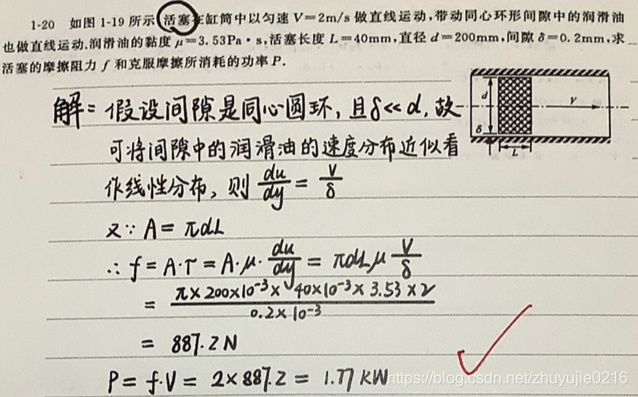 1-20 如图 1-19 所示,活塞在缸筒中以匀速 V=2m/s 做直线运动,带动同心环形间隙中的润滑油
也做直线运动.润滑油的黏度 μ=3.53Pa·s,活塞长度 L=40mm,直径 d=200mm,间隙 δ=0.2mm,求
活塞的摩擦阻力 f 和克服摩擦所消耗的功率 P.
d
V
δ
L
解:假设间隙是同心圆环,且δ≪d,故
可将间隙中的润滑油的速度分布近似看
作线性分布,则 du/dy = V/δ
又∵ A = πdL
∴ f = A·τ = A·μ·du/dy = πdLμ V/δ
= π×200×10⁻³×40×10⁻³×3.53×2 / 0.2×10⁻³
= 887.2N
P = f·V = 2×887.2 = 1.77 KW
https://blog.csdn.net/zhuyujie0216